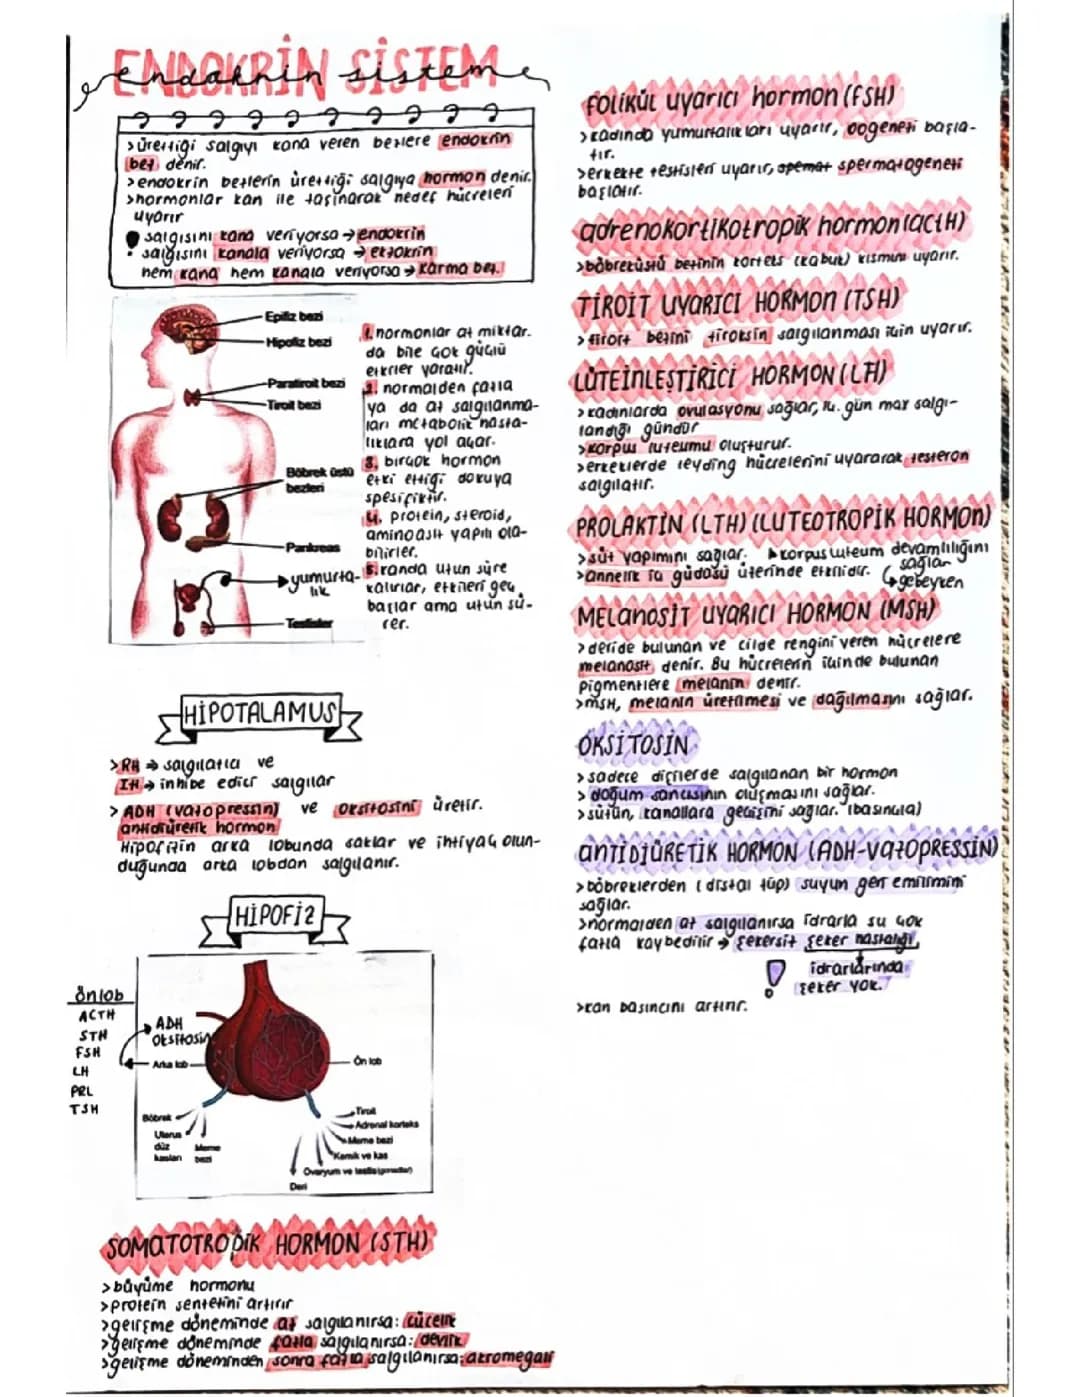 ENDOKRİN SİSTEM
endokrin sistem
>ürettiği salgıyı kana veren bezlere endokrin
bez denir.
>endokrin bezlerin ürettiği salgıya hormon denir.
>hormonlar kan ile taşınarak hedef hücreleri
uyarır
salgısını kana veriyorsa→endokrin
salgısını kanala veriyorsa→ekzokrin
hem kana hem kanala veriyorsa→karma bez.
Epifiz bezi
Hipofiz bezi
Paratiroit bezi
Tiroit bezi
Böbrek üstü
bezleri
Pankreas
yumurta-
lık
Testisler
1. hormonlar az miktar.
da bile çok güçlü
etkiler yaratır.
2. normalden fazla
ya da az salgılanma-
ları metabolik hasta-
lıklara yol açar.
3. birçok hormon
etki ettiği dokuya
spesifiktir.
4. protein, steroid,
aminoasit yapılı ola-
bilirler.
5. kanda uzun süre
kalırlar, etkileri geç
başlar ama uzun sü-
rer.
HİPOTALAMUS
>RH→salgılatıcı ve
IH→inhibe edici salgılar
>ADH (vazopressin) ve oksitosini üretir.
antidiüretik hormon
Hipofizin arka lobunda saklar ve ihtiyaç olun-
duğunda arka lobdan salgılanır.
HİPOFİZ
önlob
ACTH
STH
FSH
LH
PRL
TSH
ADH
Oksitosin
Arka lob
Ön lob
Böbrek
Uterus
düz
kasları
Meme
bezi
Tiroit
Adrenal korteks
Meme bezi
Kemik ve kas
Ovaryum ve testis(gonadlar)
Deri
SOMATOTROPİK HORMON (STH)
>büyüme hormonu
>protein sentezini artırır
>gelişme döneminde az salgılanırsa: cücelik
>gelişme döneminde fazla salgılanırsa: devlik
>gelişme döneminden sonra fazla salgılanırsa:akromegali
FOLİKÜL uyarıcı hormon (FSH)
>kadında yumurtalıkları uyarır, oogenezi başla-
tır.
>erkekte testisleri uyarır, spermatogenezi
başlatır.
adrenokortikotropik hormon (ACTH)
>böbreküstü bezinin korteks (kabuk) kısmını uyarır.
TİROİT UYARICI HORMON (TSH)
>tiroit bezini tiroksin salgılanması için uyarır.
LÜTEİNLEŞTİRİCİ HORMON (LH)
>kadınlarda ovulasyonu sağlar, 14. gün max salgı-
landığı gündür
>korpus luteumu oluşturur.
>erkeklerde leyding hücrelerini uyararak testeron
salgılatır.
PROLAKTİN (LTH) (LUTEOTROPİK HORMON)
>süt yapımını sağlar. korpus luteum devamlılığını
sağlar
>annelik iç güdüsü üzerinde etkilidir.
gebeyken
MELANOSİT UYARICI HORMON (MSH)
>deride bulunan ve cilde rengini veren hücrelere
melanosit denir. Bu hücrelerin içinde bulunan
pigmentlere melanin denir.
>MSH, melanin üretilmesi ve dağılmasını sağlar.
OKSİTOSİN
>sadece dişilerde salgılanan bir hormon
>doğum sancısının oluşmasını sağlar.
>sütün, kanallara geçişini sağlar. (basınçla)
ANTİDİÜRETİK HORMON (ADH-VAZOPRESSİN)
>böbreklerden (distal tüp) suyun geri emilimini
sağlar.
>normalden az salgılanırsa idrarla su çok
fazla kaybedilir→şekersiz şeker hastalığı,
idrarlarında
şeker yok.
>kan basıncını artırır.